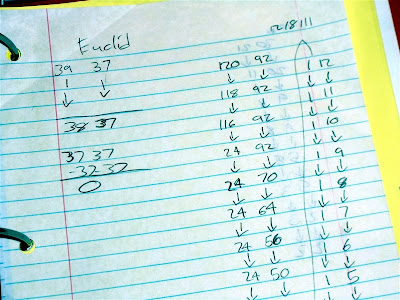 Euclid
39 37
↓ ↓
38 37
37 37
-37 37
0
120 92
↓ ↓
118 92
↓ ↓
116 92
↓ ↓
24 92
↓ ↓
24 70
↓ ↓
24 64
↓ ↓
24 56
↓ ↓
24 50
↓ ↓
1 12
↓ ↓
1 11
↓ ↓
1 10
↓ ↓
1 9
↓ ↓
1 8
↓ ↓
1 7
↓ ↓
1 6
↓ ↓
1 5